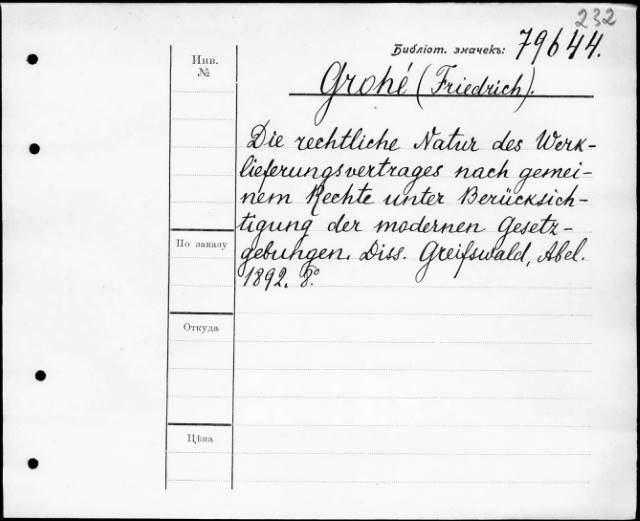 232
Библіот. значекъ: 79644.
Инв.
№
Grohé (Friedrich).
Die rechtliche Natur des Werk-
lieferungsvertrages nach gemei-
nem Rechte unter Berücksich-
tigung der modernen Gesetz-
gebungen. Diss. Greifswald, Abel.
1892. 8º
По заказу
Откуда
Цѣна